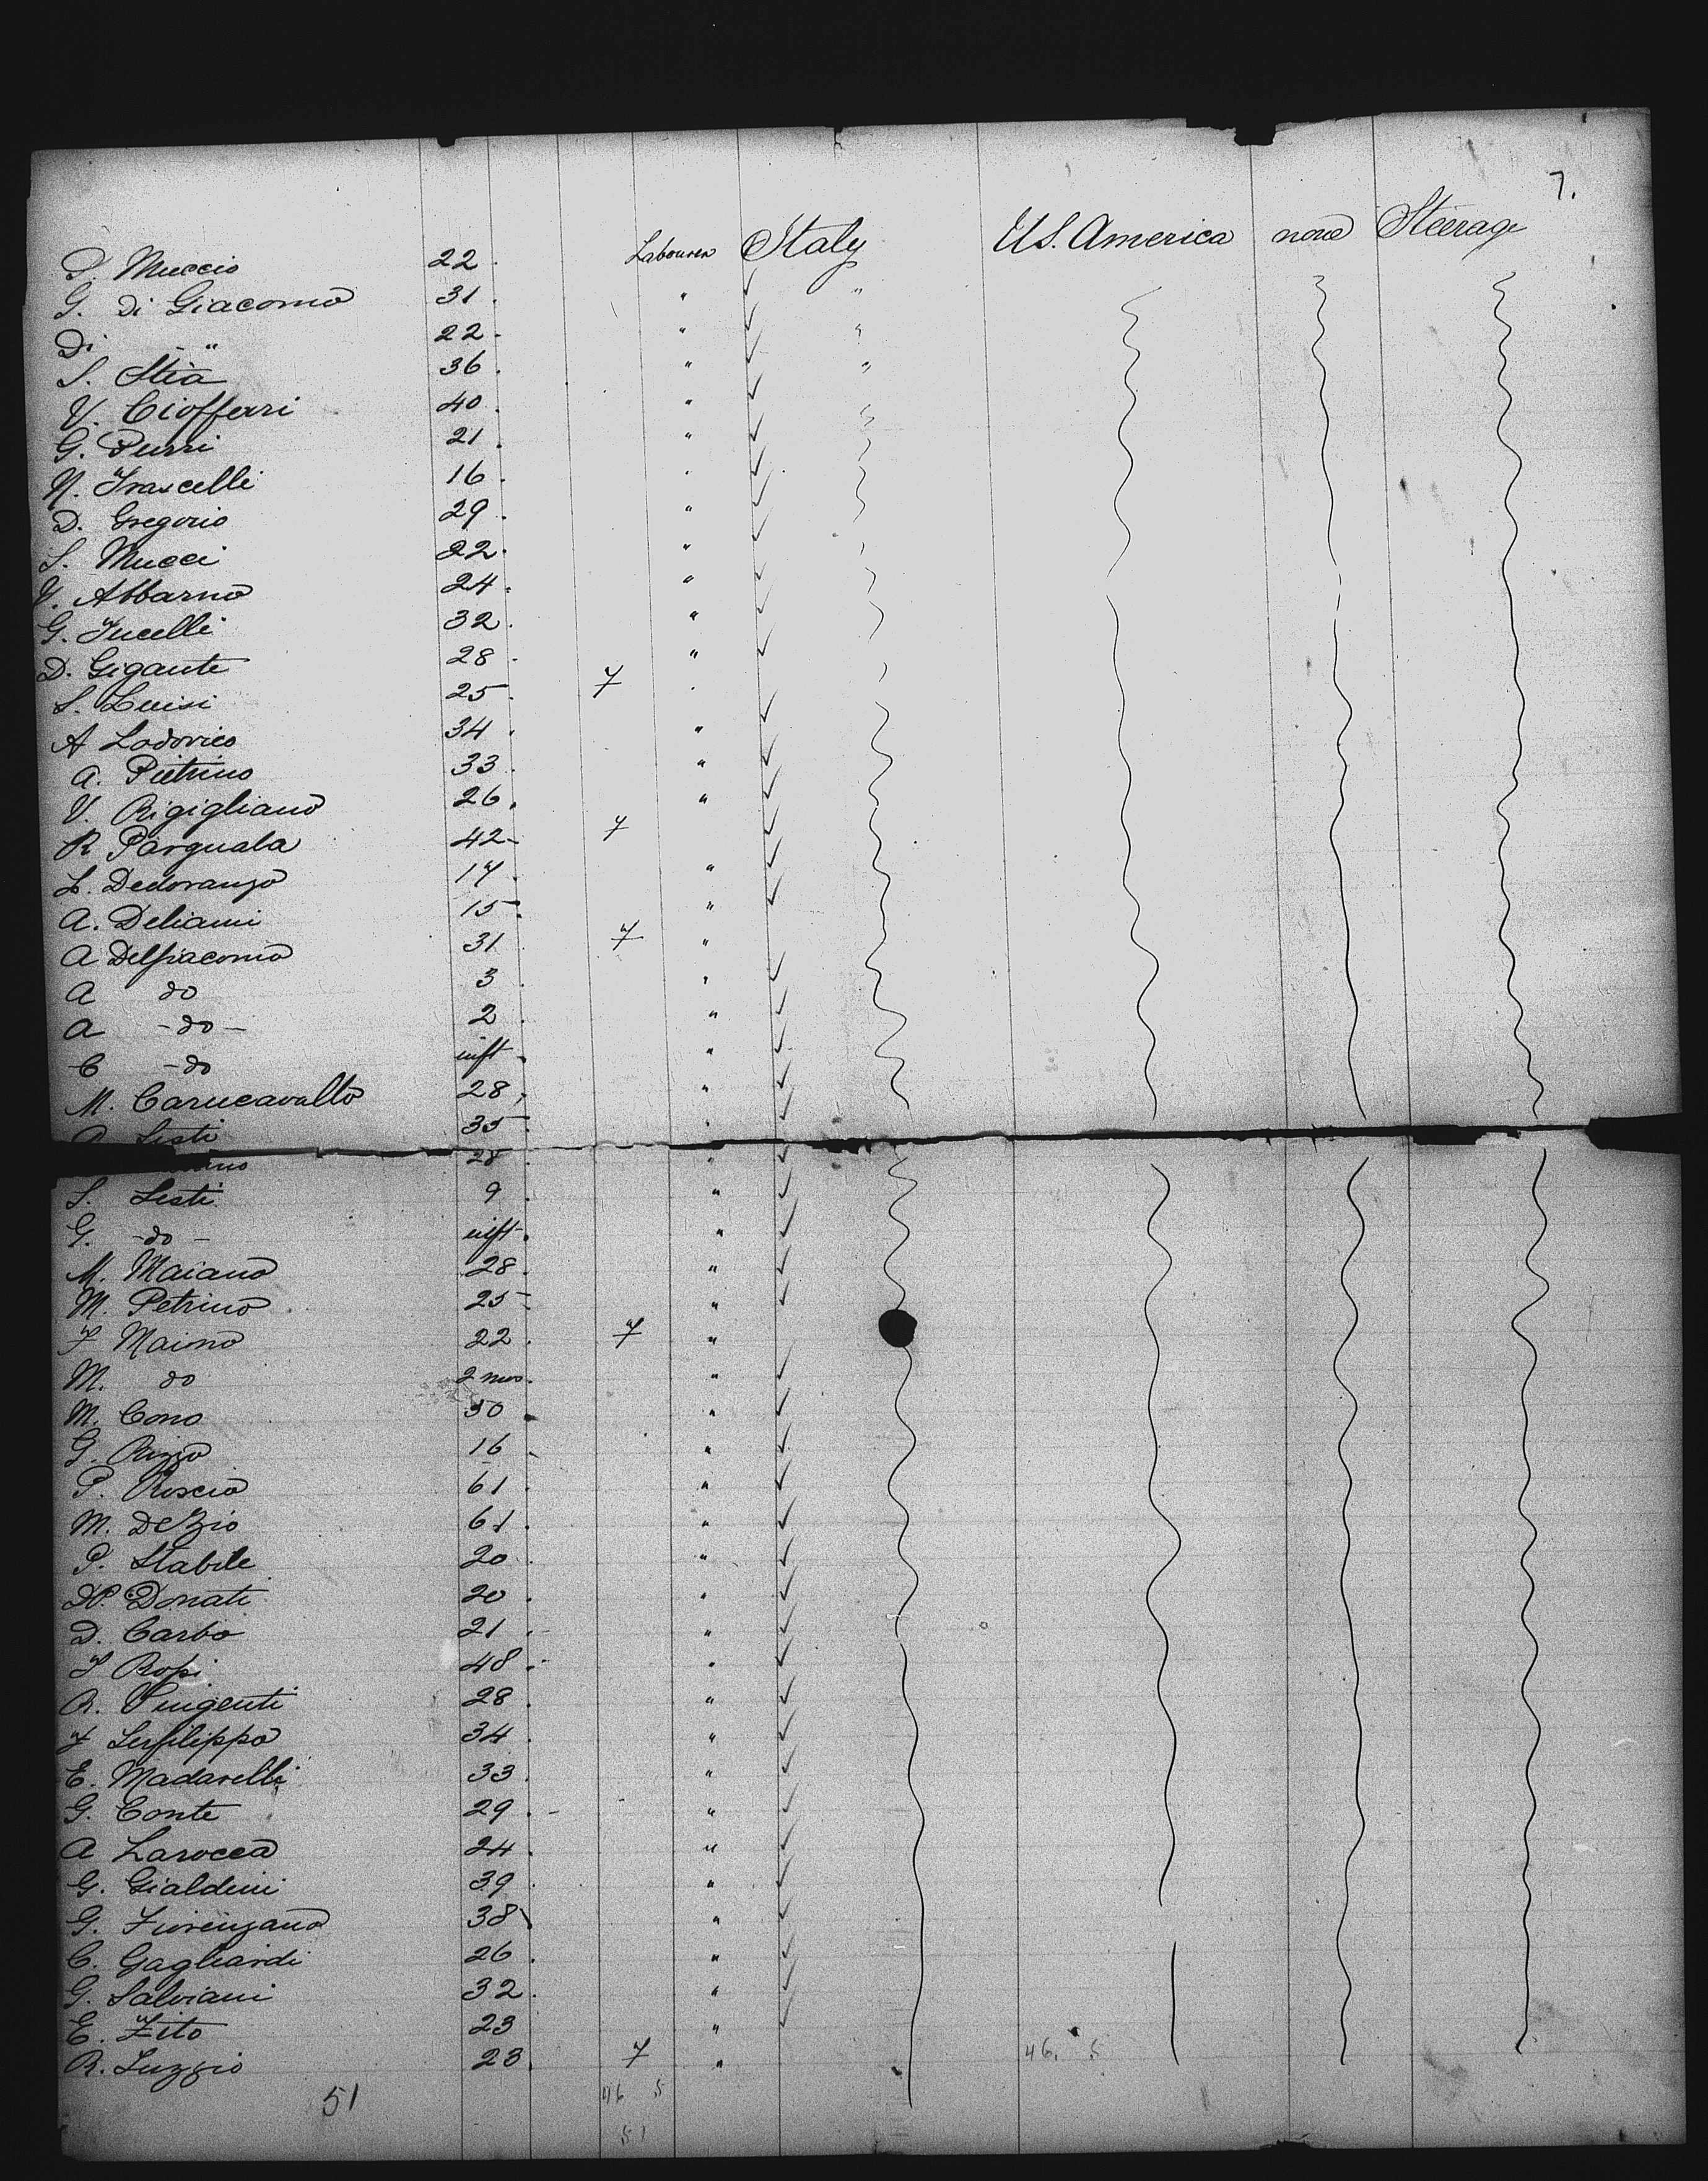 7.
P. Muccio 22 Labourer Italy U.S. America none Steerage
G. Di Giacomo 31 " "
Di - " 22 " "
S. Stia 36 " "
V. Cioffari 40 "
G. Purri 21 "
N. Frascelli 16 "
D. Gregorio 29 "
S. Mucci 22 "
V. Abbarno 24 "
G. Fucelli 32 "
D. Gigante 28 "
S. Luisi 25 7 "
A Lodovico 34 "
A. Pietrino 33 "
V. Rigigliano 26 "
R Parguala 42 7
L. Dedoranzo 17 "
A. Deliami 15 "
A Delgiacomo 31 7 "
A do 3 "
A - do - 2 "
C - do inft "
M. Carucavallo 28 "
Lesti 35 "
28 "
S. Lesti 9 "
G. - do - inft "
M. Maiano 28 "
M. Petrino 25 "
F Maiono 22 7 "
M. do 2 mos. "
M. Cono 50 "
G. Rizzo 16 "
P. Roscio 61 "
M. DeZio 61 "
P. Stabile 20 "
Donati 20 "
D. Carbo 21 "
Rossi 48 "
R. Vingenti 28 "
F Serfilippo 34 "
E. Madarelli 33 "
G. Conte 29 "
A Larocca 24 "
G. Gialdini 39 "
G. Fiorenzano 38 "
C. Gagliardi 26 "
G. Salviani 32 "
E. Zito 23 "
R. Luzzio 23 7 "
46. 5
51 46 5
51